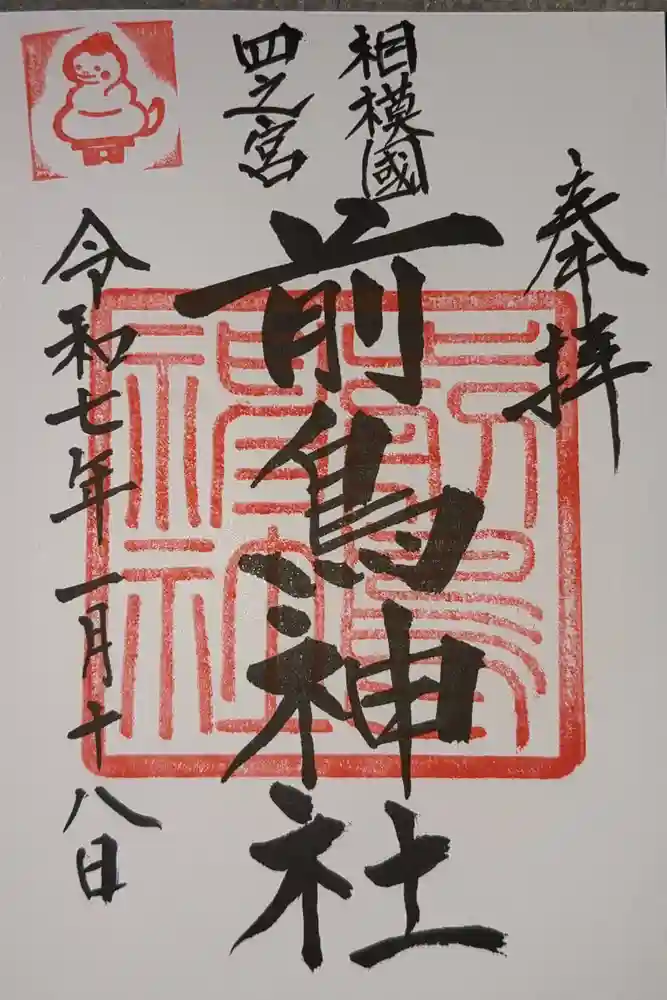 奉拝
相模國
四之宮
前鳥神社
令和七年一月十八日
前鳥
神社